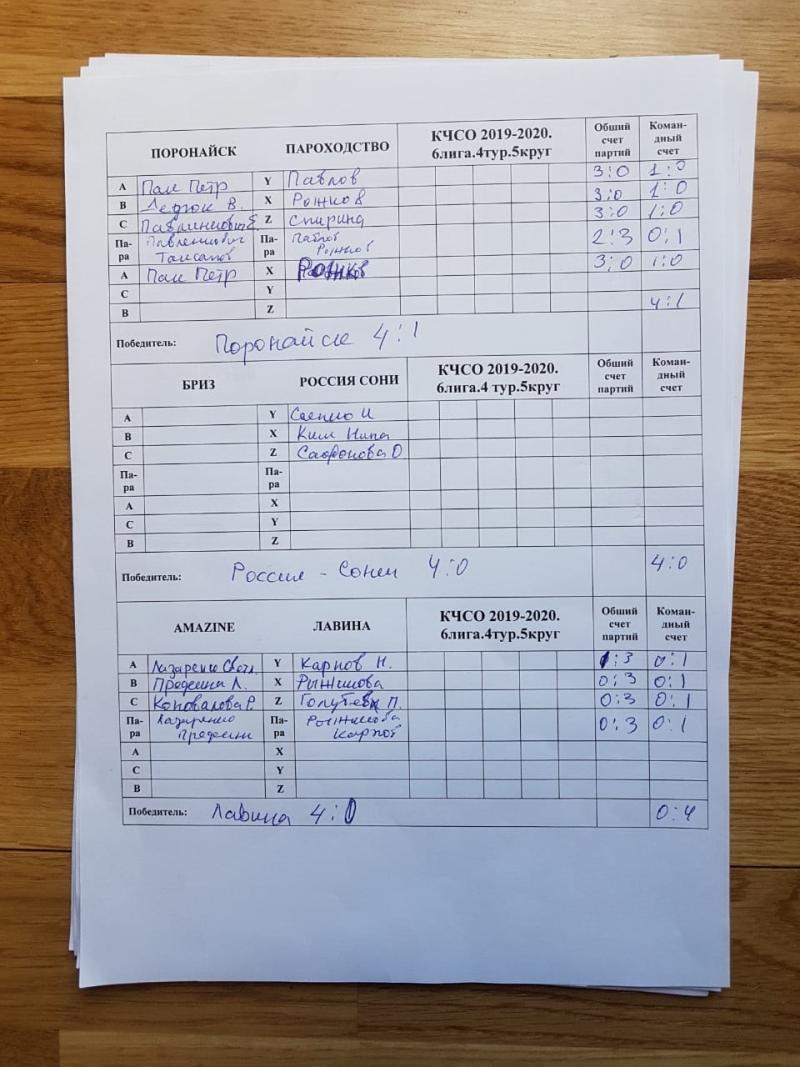 ПОРОНАЙСК ПАРОХОДСТВО КЧСО 2019-2020. 6лига.4тур.5круг Общий счет партий Коман-дный счет
A Пак Петр Y Павлов 3:0 1:0
B В. X Рожков 3:0 1:0
C Z Спирина 3:0 1:0
Па-ра Па-ра Павлов Рожков 2:3 0:1
A Пак Петр X Рожков 3:0 1:0
C Y
B Z 4:1
Победитель: Поронайск 4:1
БРИЗ РОССИЯ СОНИ КЧСО 2019-2020. 6лига.4 тур.5круг Общий счет партий Коман-дный счет
A Y И
B X Ким Нина
C Z Сафронова О
Па-ра Па-ра
A X
C Y
B Z
Победитель: Россия - Сони 4:0 4:0
AMAZINE ЛАВИНА КЧСО 2019-2020. 6лига.4тур.5круг Общий счет партий Коман-дный счет
A Лазаренко Свет. Y Карпов Н. :3 0:1
B Л. X Рыжкова 0:3 0:1
C Коновалова Р. Z П. 0:3 0:1
Па-ра Лазаренко Па-ра Рыжкова Карпов 0:3 0:1
A X
C Y
B Z
Победитель: Лавина 4:0 0:4